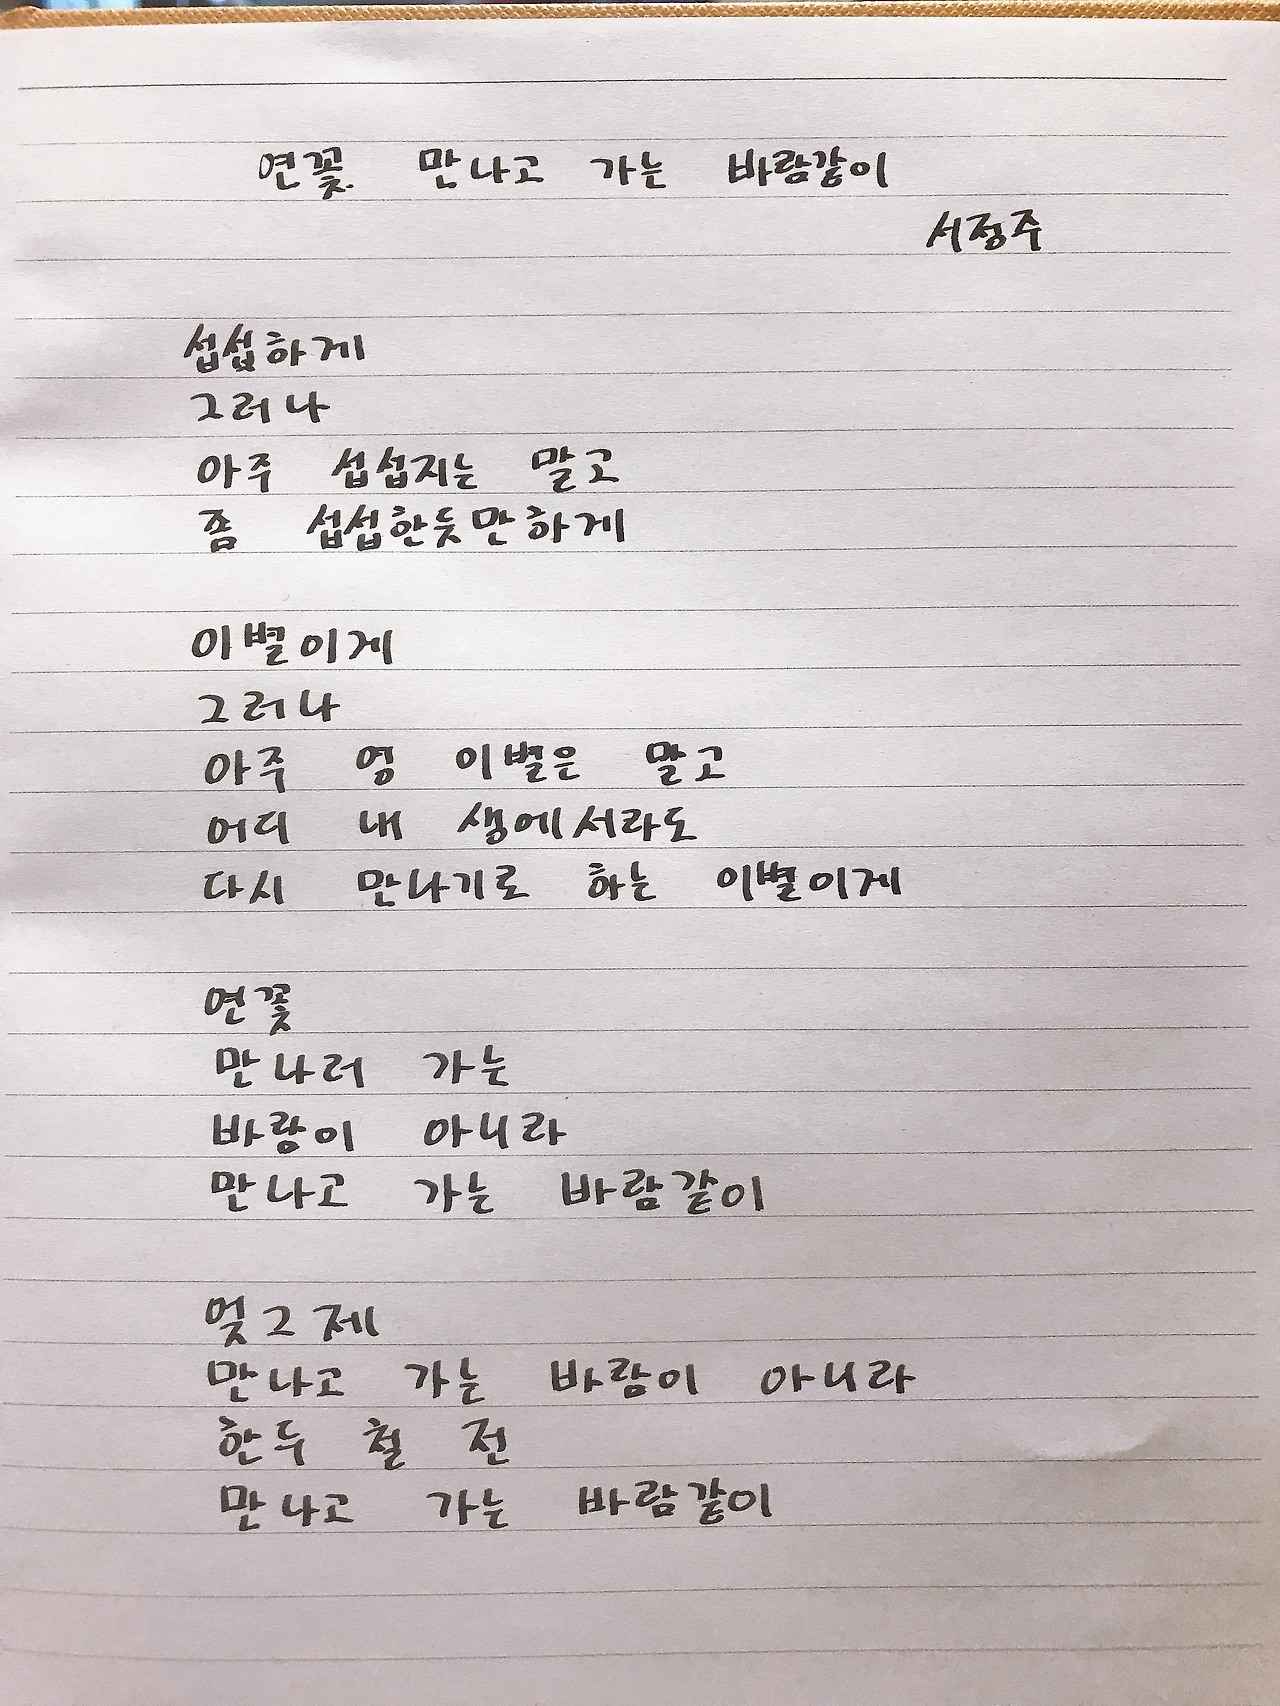 연꽃 만나고 가는 바람같이
서정주
섭섭하게
그러나
아주 섭섭지는 말고
좀 섭섭한듯만하게
이별이게
그러나
아주 영 이별은 말고
어디 내 생에서라도
다시 만나기로 하는 이별이게
연꽃
만나러 가는
바람이 아니라
만나고 가는 바람같이
엊그제
만나고 가는 바람이 아니라
한두 철 전
만나고 가는 바람같이